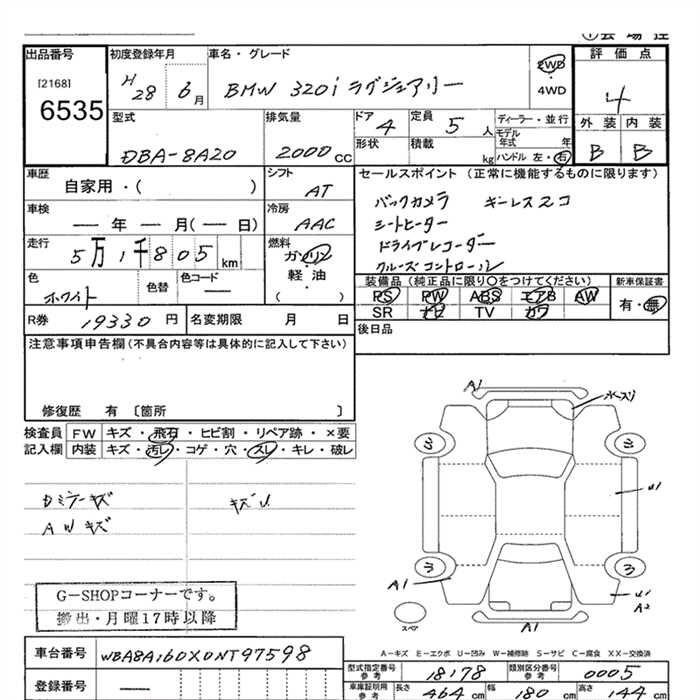 出品番号 初度登録年月 車名・グレード 評価点
[2168]
6535 H28 6月 BMW 320i ラグジュアリー 2WD 4WD 4
型式 排気量 ドア 4 定員 5人 ディーラー・並行 外装 内装
DBA-8A20 2000cc 形状 積載 kg モデル年式 年 ハンドル 左・右 B B
車歴 自家用・( ) シフト AT セールスポイント (正常に機能するものに限ります)
車検 ― 年 ― 月(― 日) 冷房 AAC バックカメラ キーレス2コ
シートヒーター
走行 5万1千805km 燃料 ガソリン 軽油 ( ) ドライブレコーダー
クルーズコントロール
色 ホワイト 色替 色コード ― 装備品 (純正品に限り○をつけてください) 新車保証書
PS PW ABS エアB AW 有・無
SR ナビ TV カワ
R券 19330円 名変期限 月 日 後日品
注意事項申告欄(不具合内容等は具体的に記入して下さい)
修復歴 有 〔箇所 〕
検査員 FW キズ・飛石・ヒビ割・リペア跡・×要
記入欄 内装 キズ・汚レ・コゲ・穴・スレ・キレ・破レ
Dミラーキズ キズU
AWキズ
G-SHOPコーナーです。
搬出・月曜17時以降
A1
U1
A1
U1
A2
スペア
A1
A-キズ E-エクボ U-凹み W-補修跡 S-サビ C-腐食 XX-交換済
車台番号 WBA8A160X0NT97598
登録番号 ―
型式指定番号 参考 18178 類別区分番号 参考 0005
車庫証明用 参考 長さ 464cm 幅 180cm 高さ 144cm